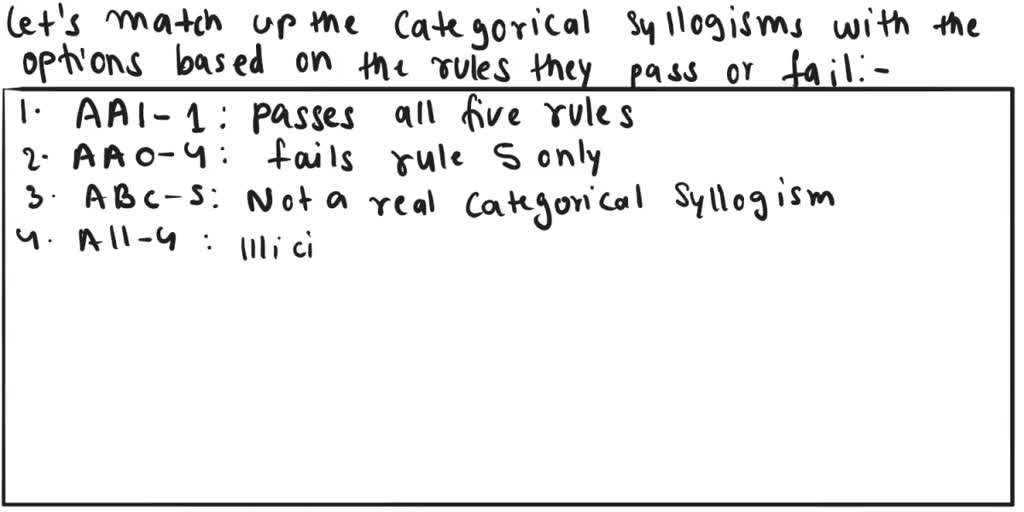 Let's match up the categorical syllogisms with the
options based on the rules they pass or fail:-
1. AAI-1: passes all five rules
2. AAO-4: fails rule 5 only
3. ABC-5: Not a real categorical syllogism
4. AII-4: Illici